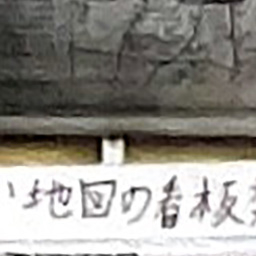 い地図の看板